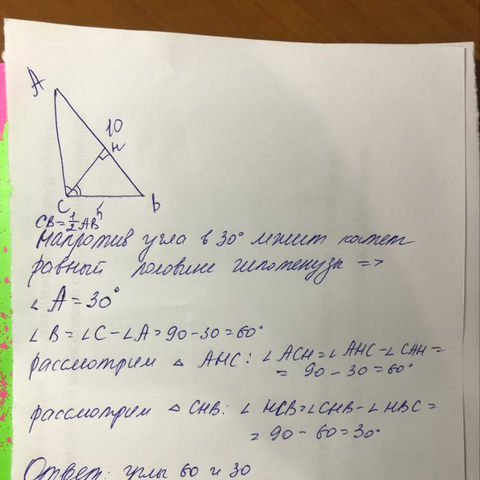 A
10
H
C
5
b
CB=½AB
Напротив угла в 30° лежит катет
равный половине гипотенузы =>
∠ A = 30°
∠ B = ∠C - ∠A = 90 - 30 = 60°
рассмотрим △ AHC: ∠ ACH = ∠ AHC - ∠ CAH =
= 90 - 30 = 60°
рассмотрим △ CHB: ∠ HCB = ∠CHB - ∠ HBC =
= 90 - 60 = 30°
Ответ: углы 60 и 30